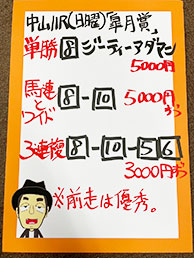 中山11R(日曜)「皐月賞」
単勝 8 ジーティーアダマン
5000円
馬連とワイド 8-10 5000円ずつ
3連複 8-10-5 6
3000円ずつ
※前走は優秀。